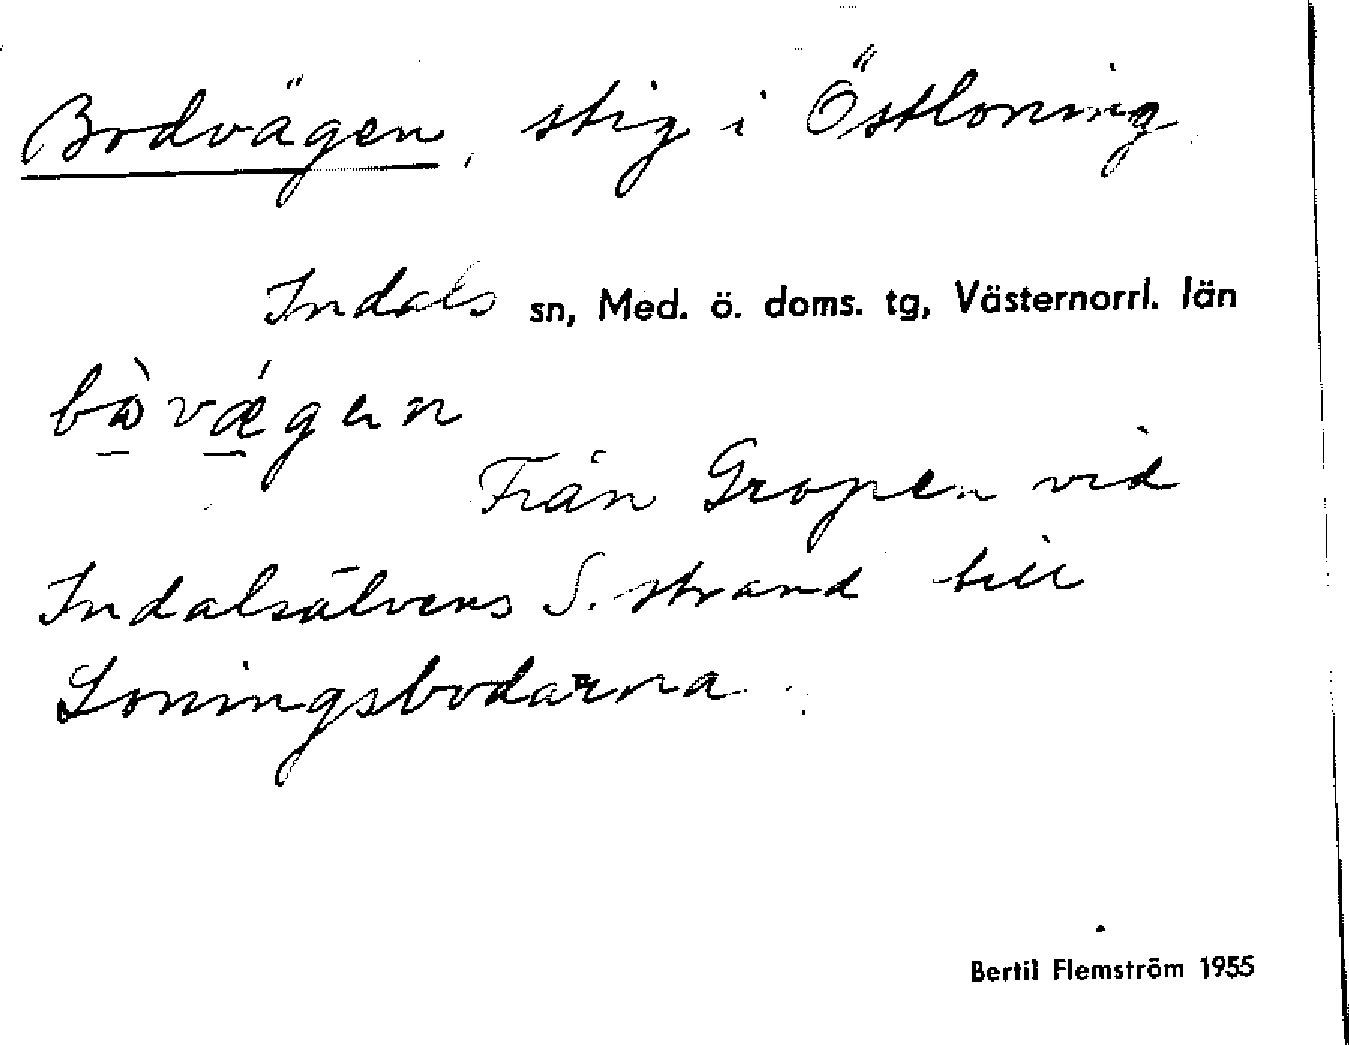 Bodvägen, stig i Östloning
Indals sn, Med. ö. doms. tg, Västernorrl. län
Från Gropen vid
Indalsälvens S. strand till
Loningsbodarna.
Bertil Flemström 1955